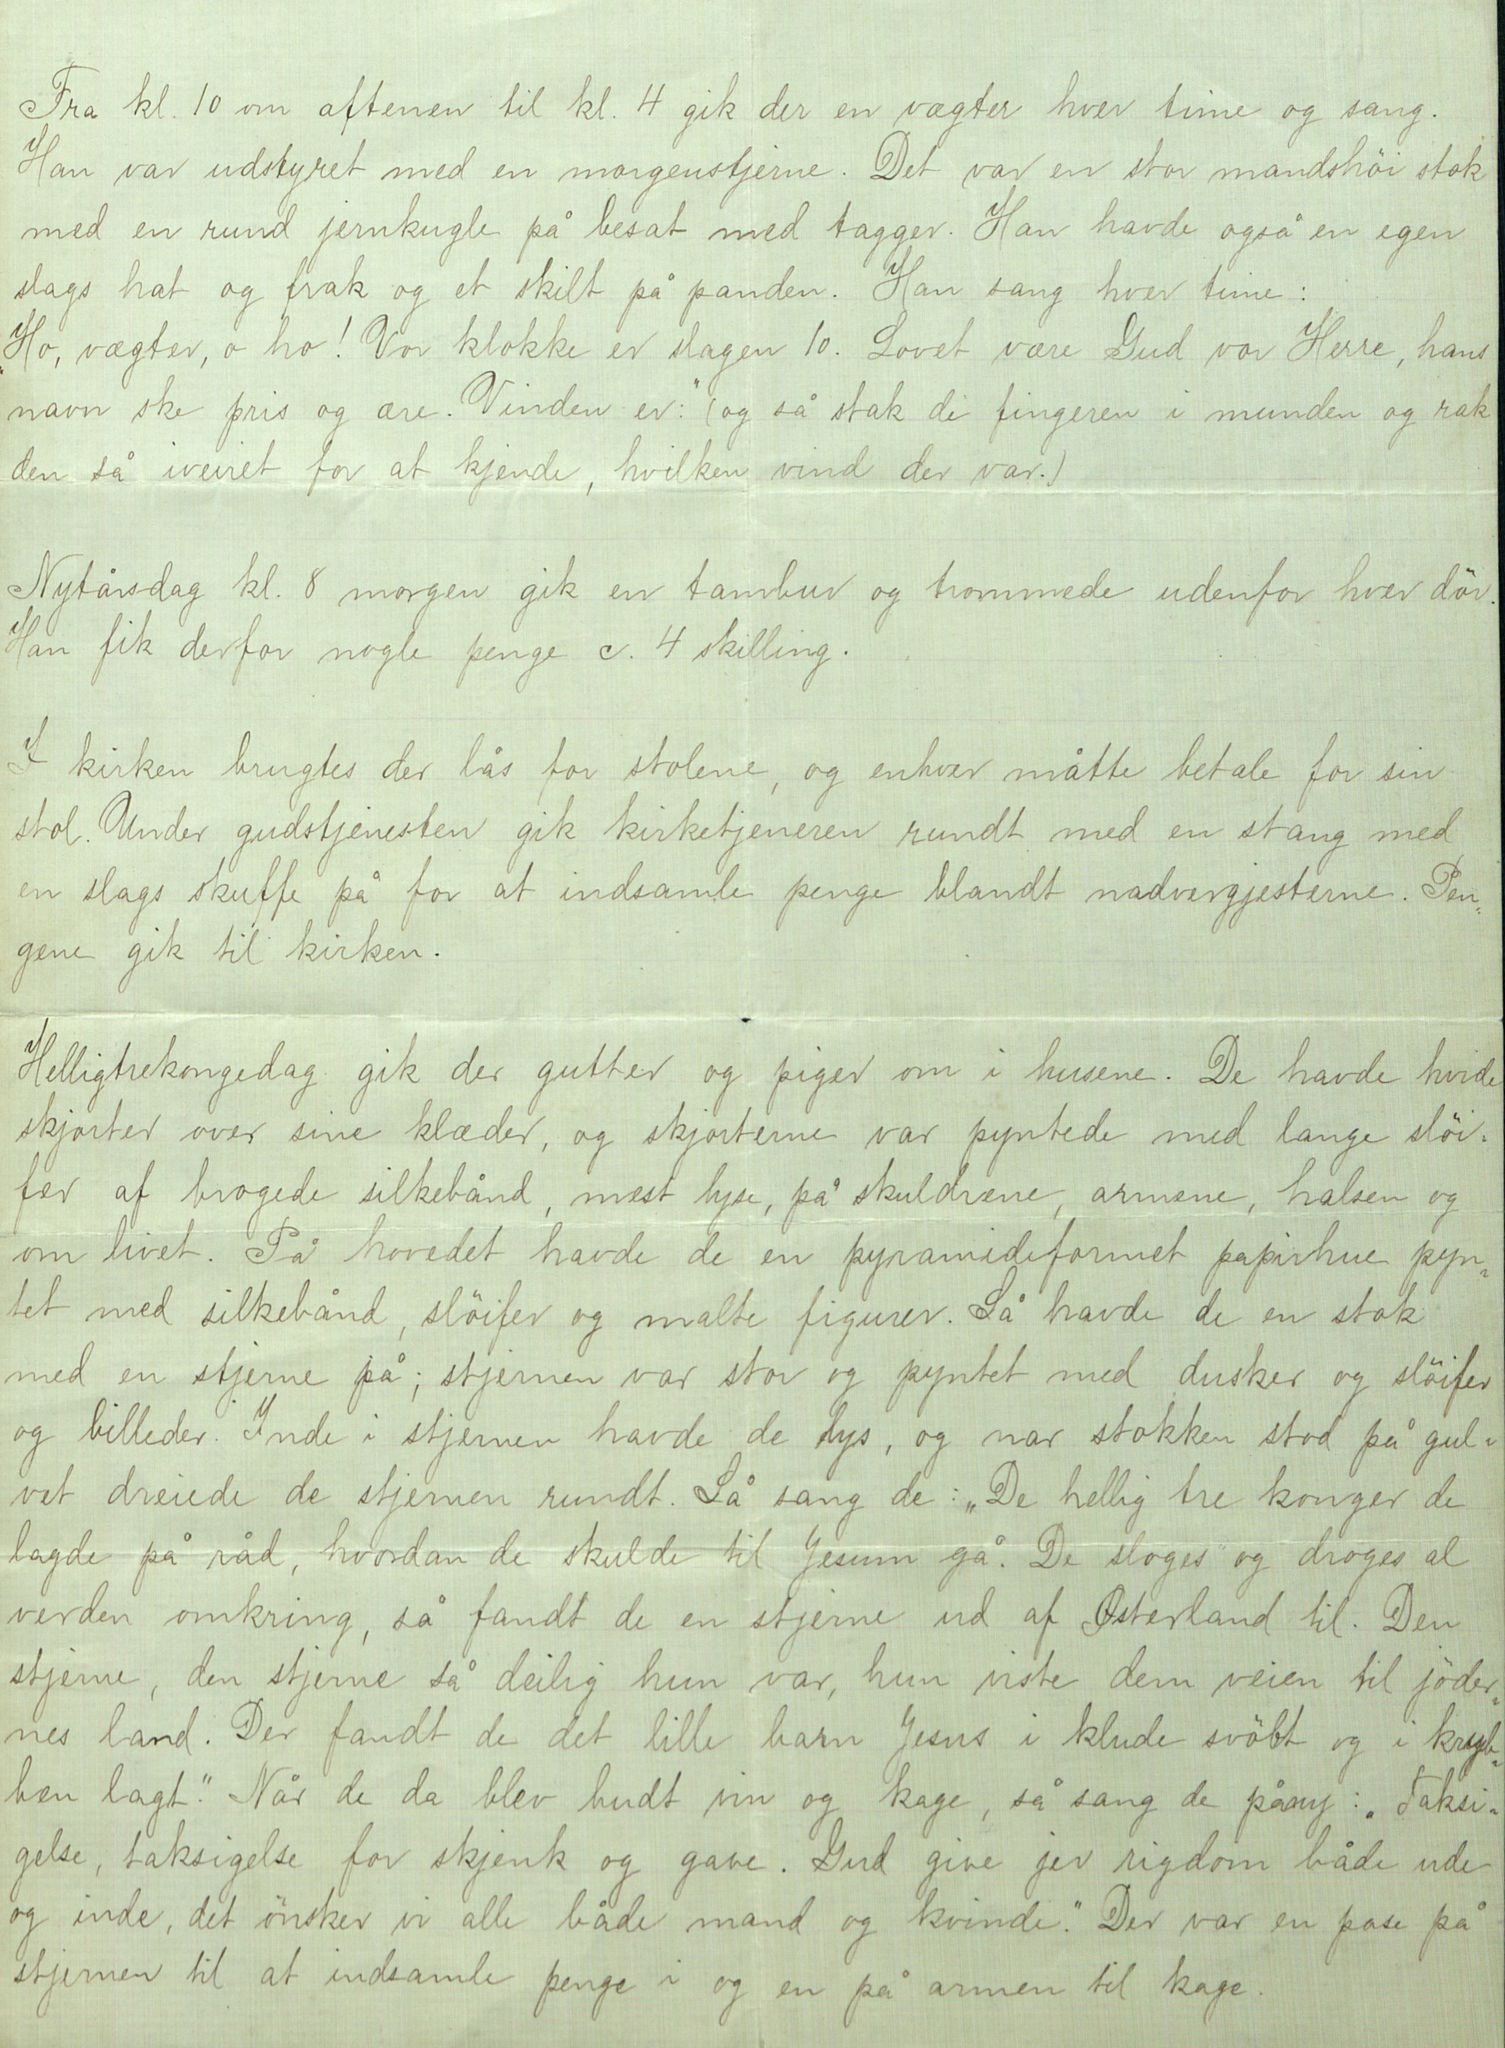 Fra kl. 10 om aftenen til kl. 4 gik der en vægter hver time og sang.
Han var udstyret med en morgenstjerne. Det var en stor mandshöi stok
med en rund jernkugle på besat med tagger. Han havde også en egen
slags hat og frak og et skilt på panden. Han sang hver time:
„Ho, vægter, o ho! Vor klokke er slagen 10. Lovet være Gud vor Herre, hans
navn ske pris og ære. Vinden er:" (og så stak de fingeren i munden og rak
den så iveiret for at kjende, hvilken vind der var.)
Nytårsdag kl. 8 morgen gik en tambur og trommede udenfor hver dör.
Han fik derfor nogle penge c. 4 skilling.
I kirken brugtes der lås for stolene, og enhver måtte betale for sin
stol. Under gudstjenesten gik kirketjeneren rundt med en stang med
en slags skuffe på for at indsamle penge blandt nadvergjesterne. Pen-
gene gik til kirken.
Helligtrekongedag gik der gutter og piger om i husene. De havde hvide
skjorter over sine klæder, og skjorterne var pyntede med lange slöi-
fer af brogede silkebånd, mest lyse, på skuldrene, armene, halsen og
om livet. På hovedet havde de en pyramideformet papirhue pyn-
tet med silkebånd, slöifer og malte figurer. Så havde de en stok
med en stjerne på; stjernen var stor og pyntet med dusker og slöifer
og billeder. Inde i stjernen havde de lys, og nar stokken stod på gul-
vet dreiede de stjernen rundt. Så sang de: „De hellig tre konger de
lagde på råd, hvordan de skulde til Jesum gå. De sloges og droges al
verden omkring, så fandt de en stjerne ud af Østerland til. Den
stjerne, den stjerne så deilig hun var, hun viste dem veien til jöder-
nes land. Der fandt de det lille barn Jesus i klude svöbt og i kryb-
ben lagt." Når de da blev budt vin og kage, så sang de påny: „Taksi-
gelse, taksigelse for skjenk og gave. Gud give jer rigdom både ude
og inde, det önsker vi alle både mand og kvinde." Der var en pose på
stjernen til at indsamle penge i og en på armen til kage.